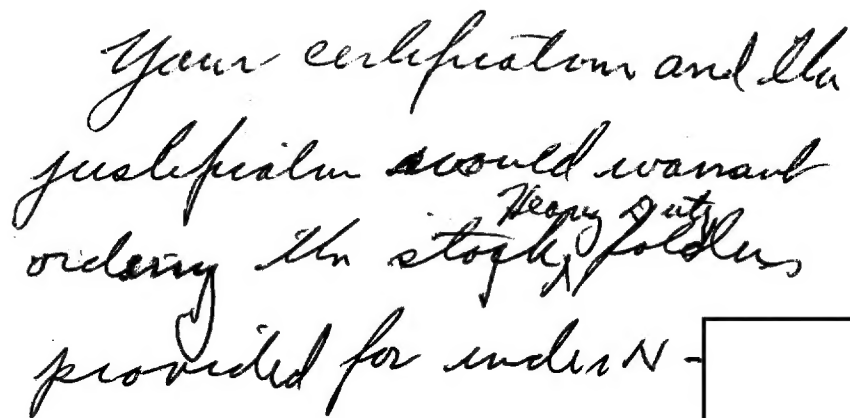 Your certification and the
justification would warrant
ordering the stock Heavy Duty folders
provided for under N -